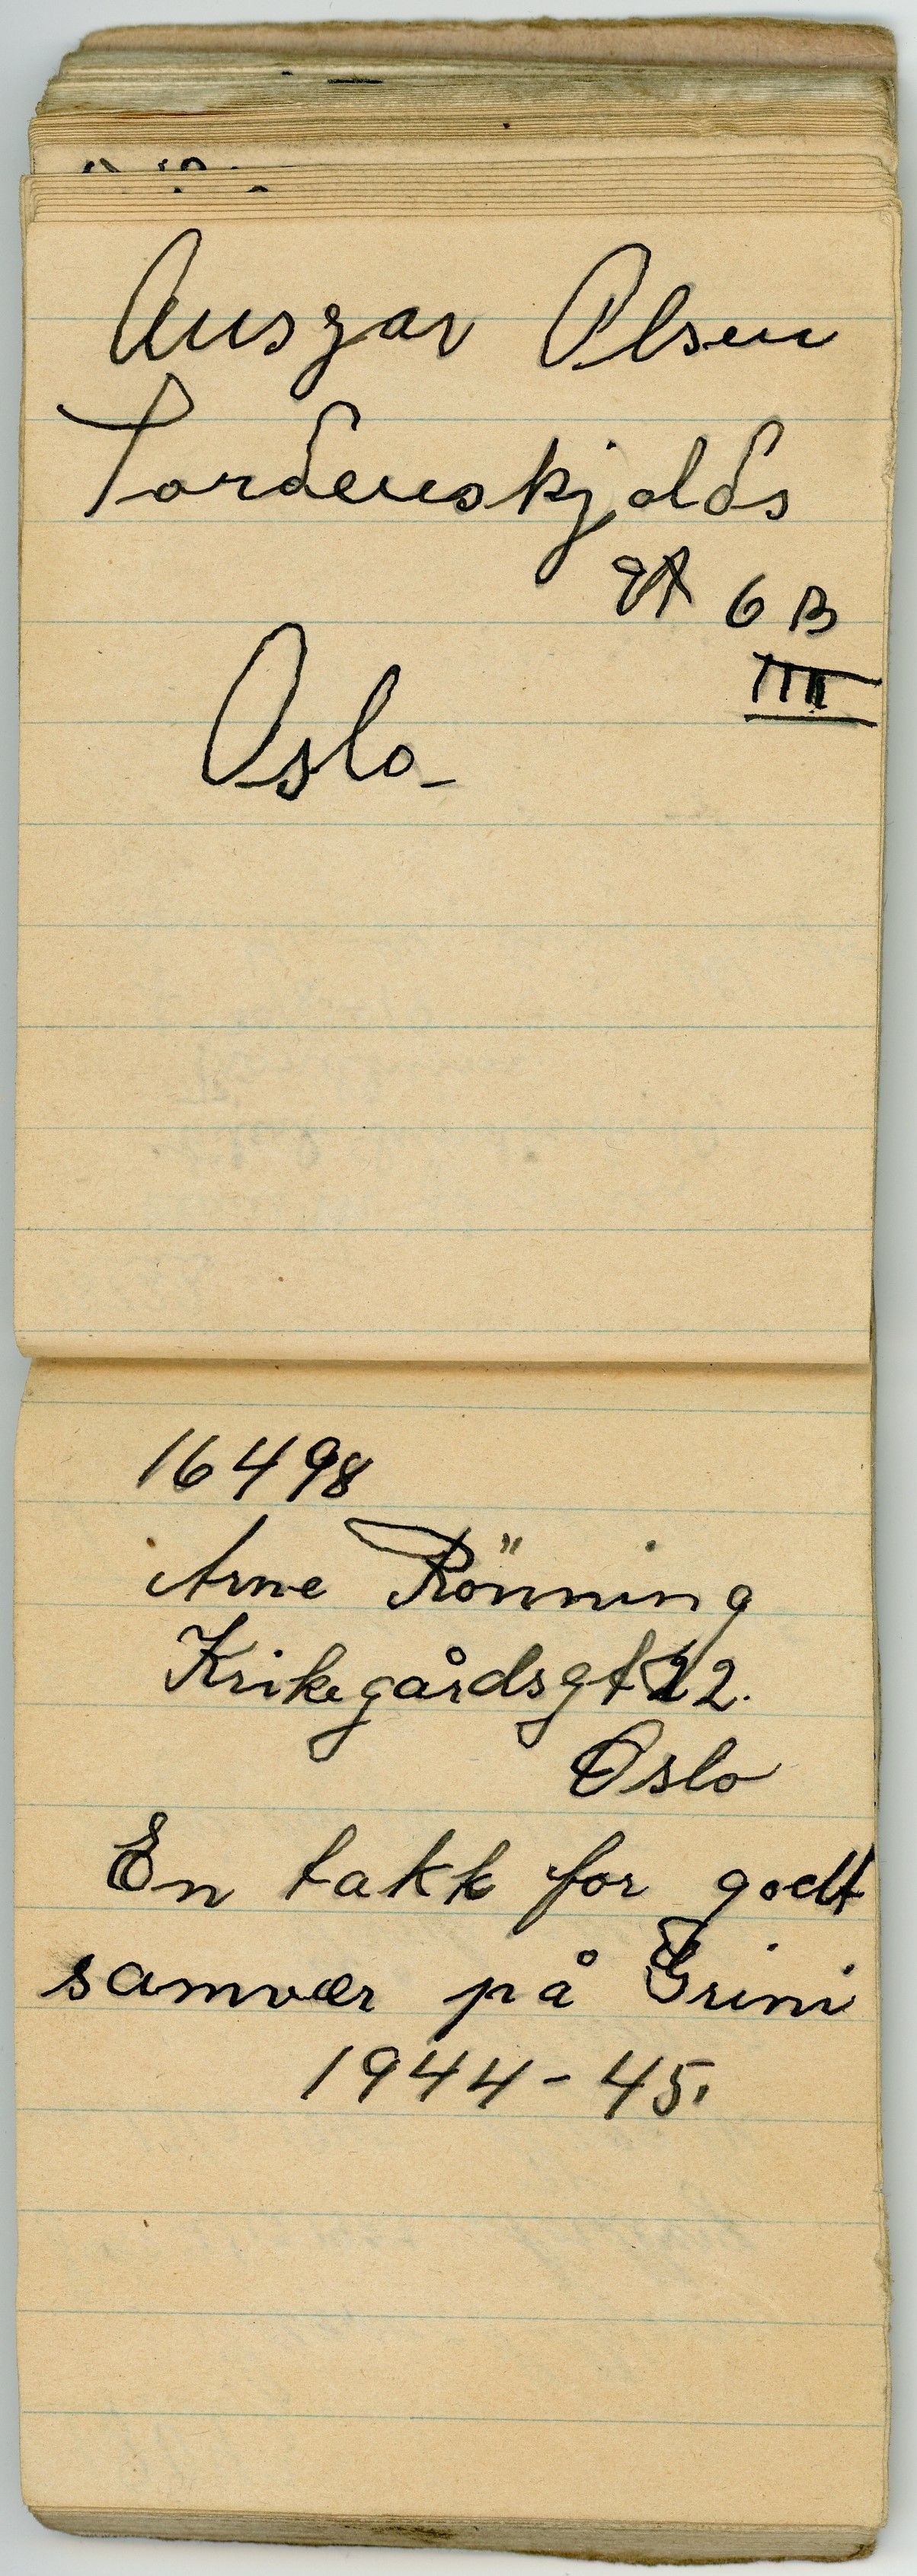 Ansgar Olsen
Tordenskjolds
gt 6 B
III
Oslo
16498
Arne Rönning
Krikegårdsgt 22.
Oslo
En takk for godt
samvær på Grini
1944-45.